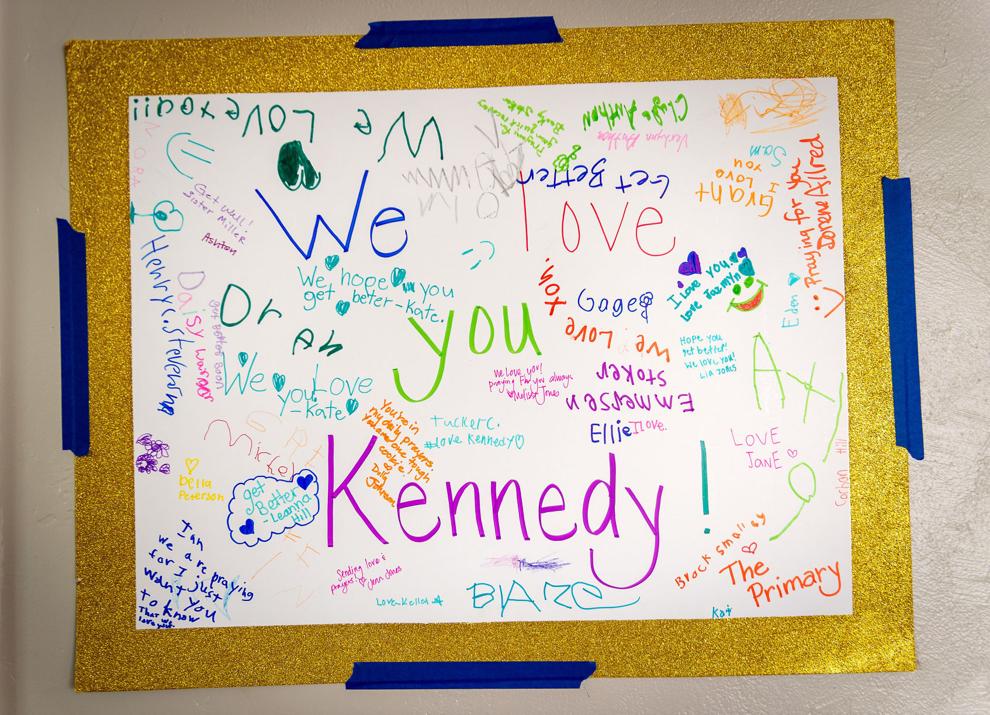 We LOVE
We love
you
Kennedy!
Get Better
Get Well!
Sister Miller
Ashton
We hope you
get beter-Kate.
We you Love
y-Kate
Henry.c.stevenson
Daisy
get Better soon
you.
We Love
Gage
I Love you.
love Jazmyn
Hope you
get better!
We love you!
Lia Jones
Sam
I
Love
you
Grant
Praying for you
Lorene Allred
Eden
We Love you!
praying for you always
Emmersen
Stoker
Ellie I love.
Tucker C.
#Love Kennedy
You're in
my daily prayers
You are one tough
cookie!
LOVE
JANE
Della
Peterson
get
Better
-Leanna
Hill
Ian
We are praying
for I just
want you
to know
That we
love you.
Sending love &
prayers! Jenn Jones
Love Kellen
BlAZE
Brock Small
The
Primary
Kai